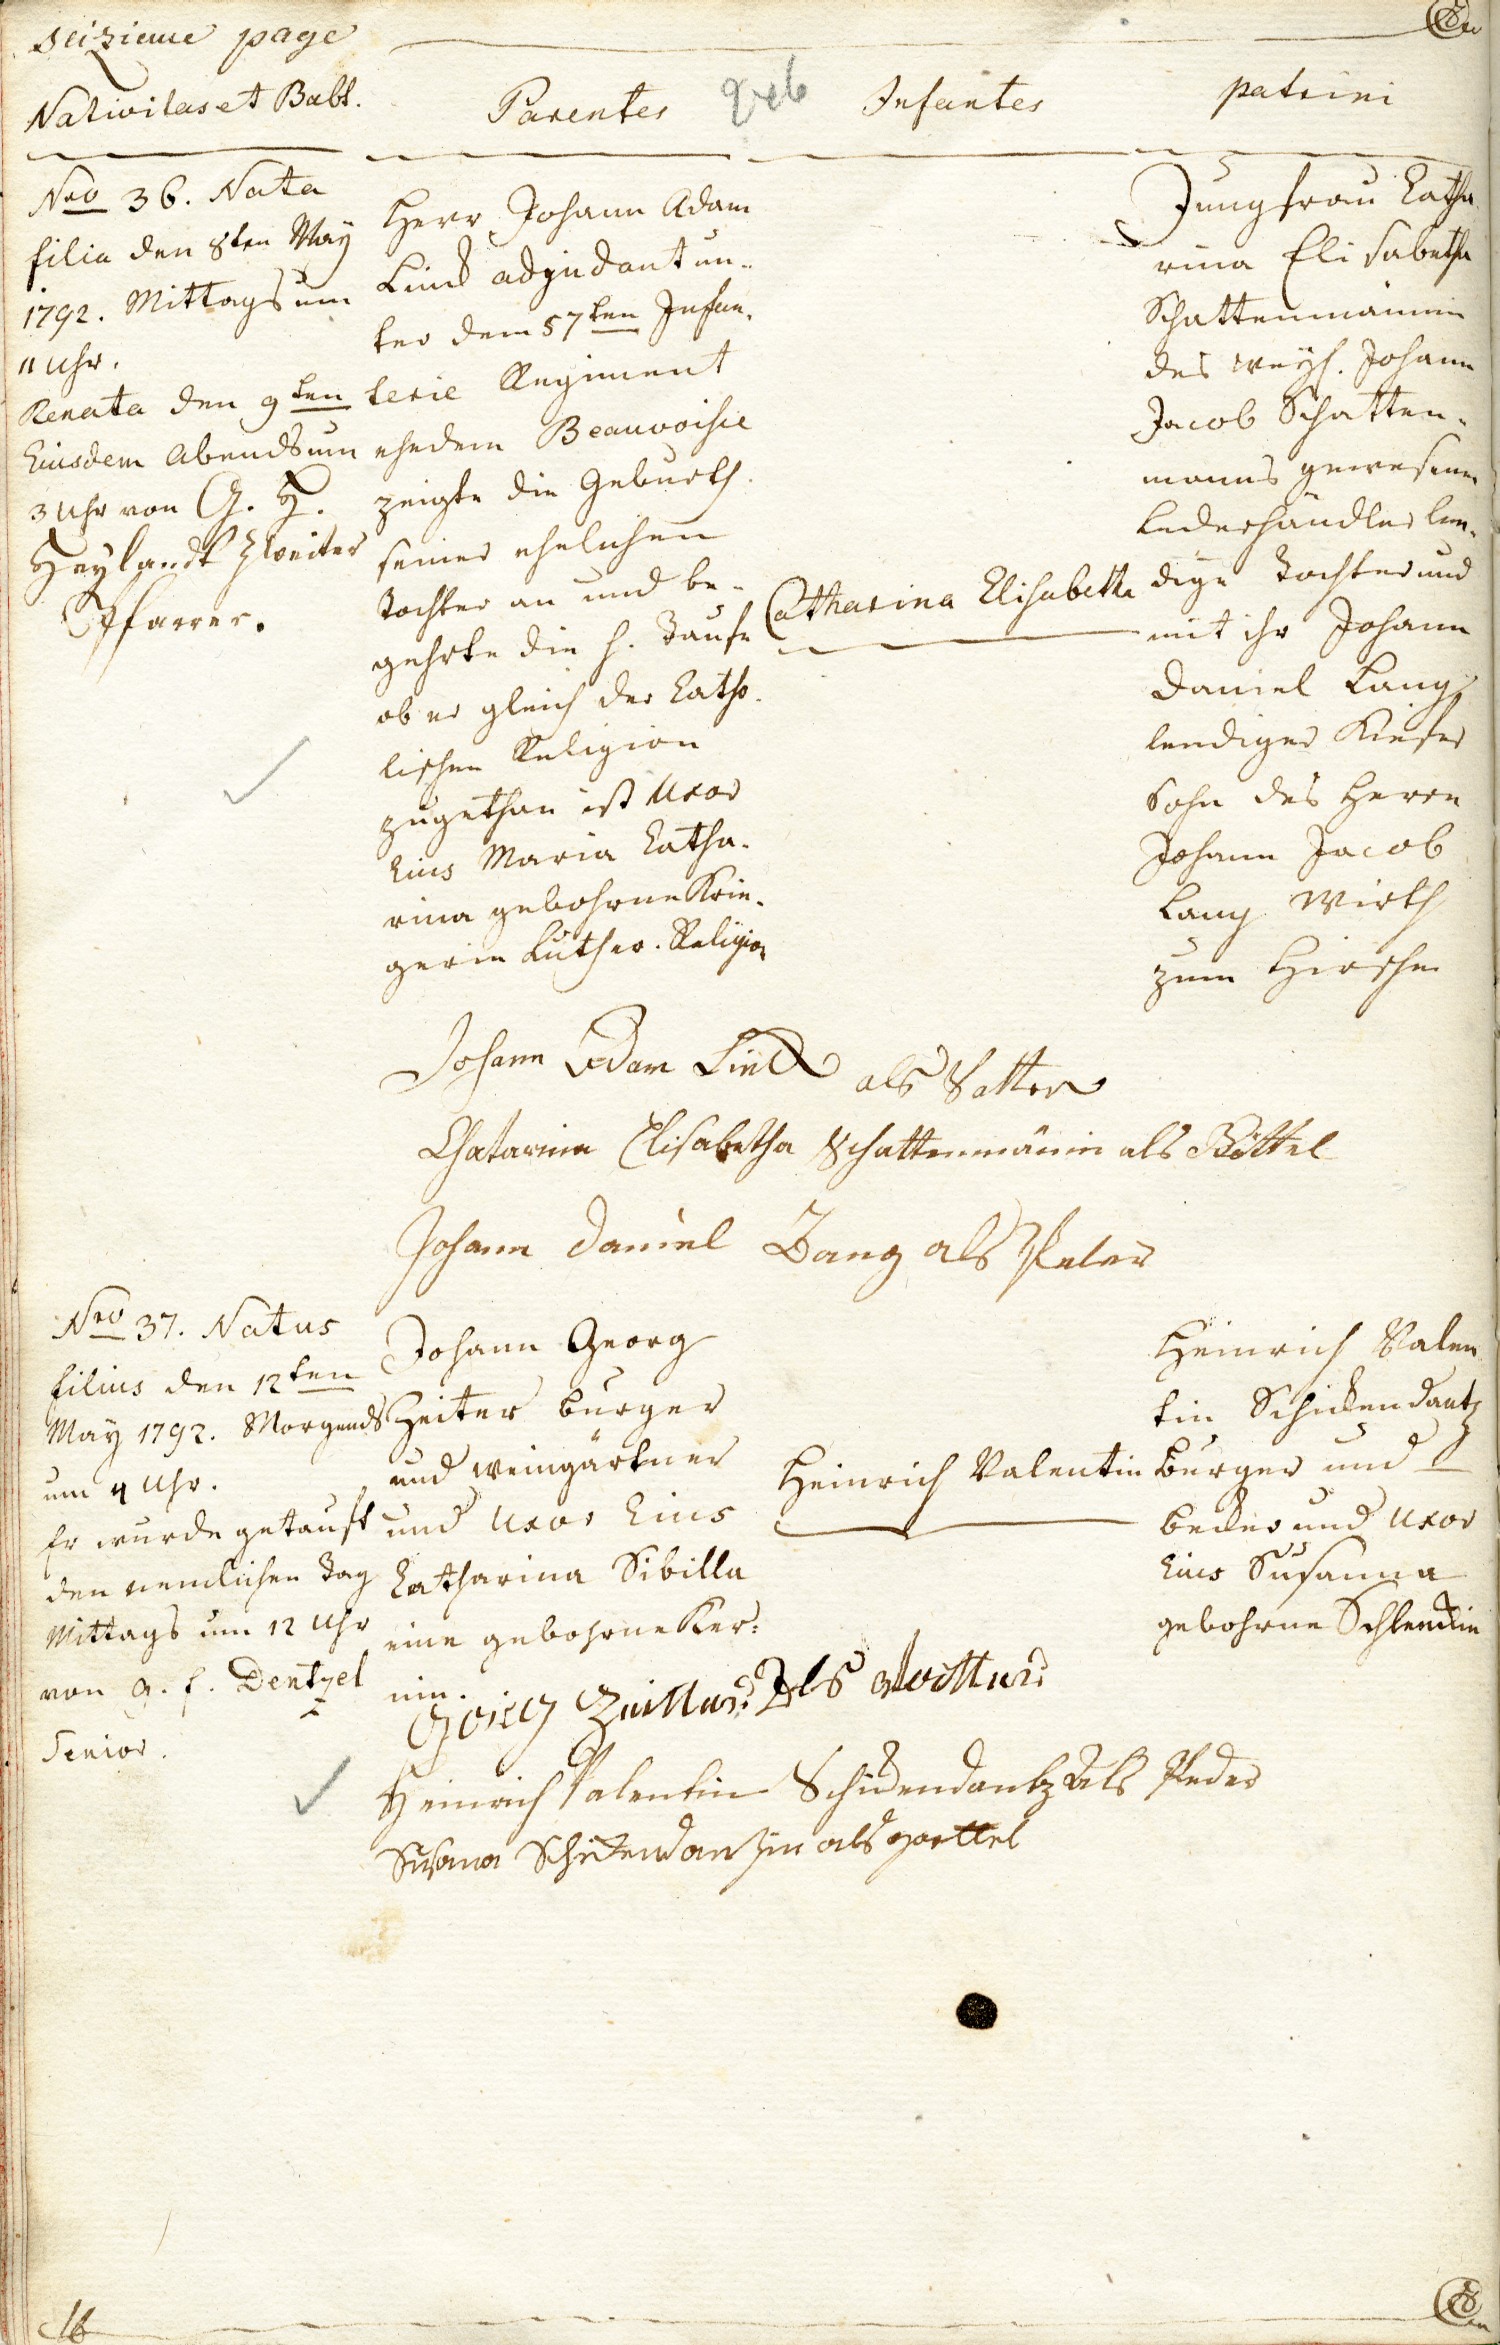 seizieme page
Nativitas et Babt.
Parentes
Infantes
patrini
Nro 36. Nata
filia den 8ten May
1792. Mittags um
11 Uhr.
Renata den 9ten
Eiusdem Abends um
3 Uhr von G. H.
Heylandt Zweiter
Pfarrer.
Herr Johann Adam
Lind adjudant un-
ter dem 57ten Infan-
terie Regiment
ehedem Beauvoisie
zeigte die Geburth
seiner ehelichen
Tochter an und be-
gehrte die h. Taufe
ob er gleich der Catho-
lischen Religion
zugethan ist Uxor
Eius Maria Catha-
rina gebohrne Krie-
gerin Luther. Religion
Catharina Elisabetha
Jungfrau Catha
rina Elisabetha
Schattenmännin
des weyl. Johann
Jacob Schatten-
manns gewesenen
Lederhändler len-
dige Tochter und
mit ihr Johann
Daniel Lang
lendiger Kiefer
Sohn des Herrn
Johann Jacob
Lang Wirth
zum Hirschen
Johann Adam als Vatter
Chatarina Elisabetha Schattenmänin als Göttel
Johann Daniel Lang als Peter
Nro 37. Natus
filius den 12ten
May 1792. Morgends
um 4 Uhr.
Er wurde getauft
den nemlichen Tag
Mittags um 12 Uhr
von G. F. Dentzel
Senior.
Johann Georg
Zeiter burger
und weingärtner
und Uxor Eius
Catharina Sibilla
eine gebohrne Ker-
nin.
Heinrich Valentin
Heinrich Valen
tin Schickendantz
burger und
becker und Uxor
Eius Susanna
gebohrne Schlenckin
Georg Zeitter Als Vatter
Heinrich Valentin Schickendantz Als Peder
Susana Schickendanzin als goettel
16